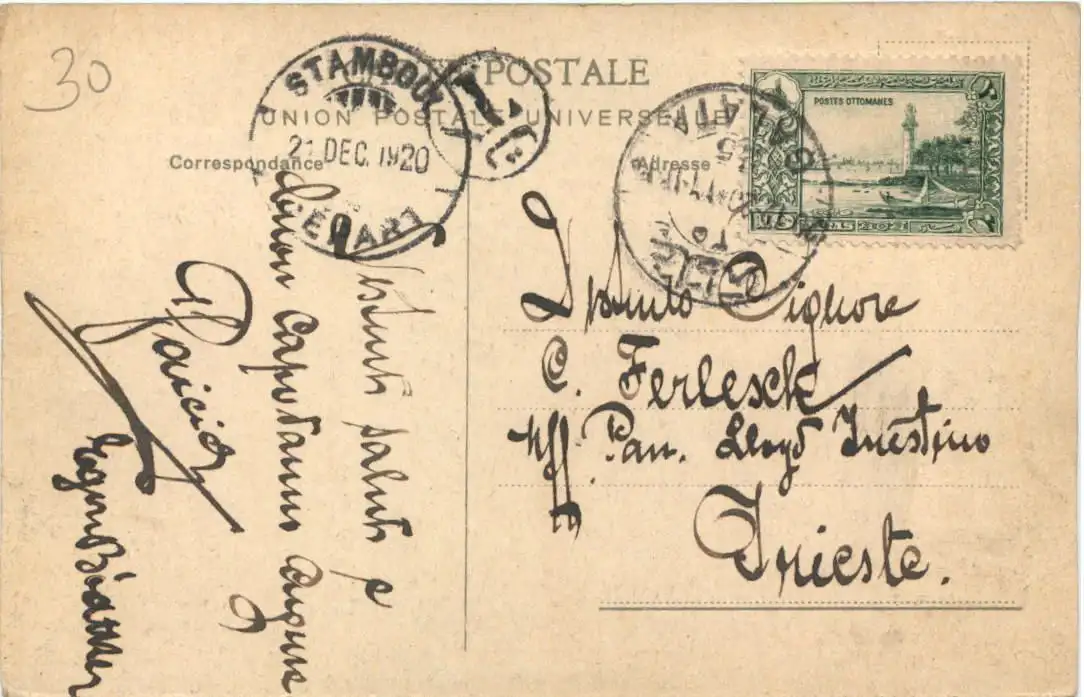 30
POSTALE
UNION POSTALE UNIVERSELLE
Correspondance
Adresse
STAMBOUL
21 DEC. 1920
DEPART
GALATA
POSTES OTTOMANES
Distinto Signore
C. Ferlesch
Uff. Pan. Lloyd Triestino
Trieste.
Distinti saluti e
buon capodanno augura